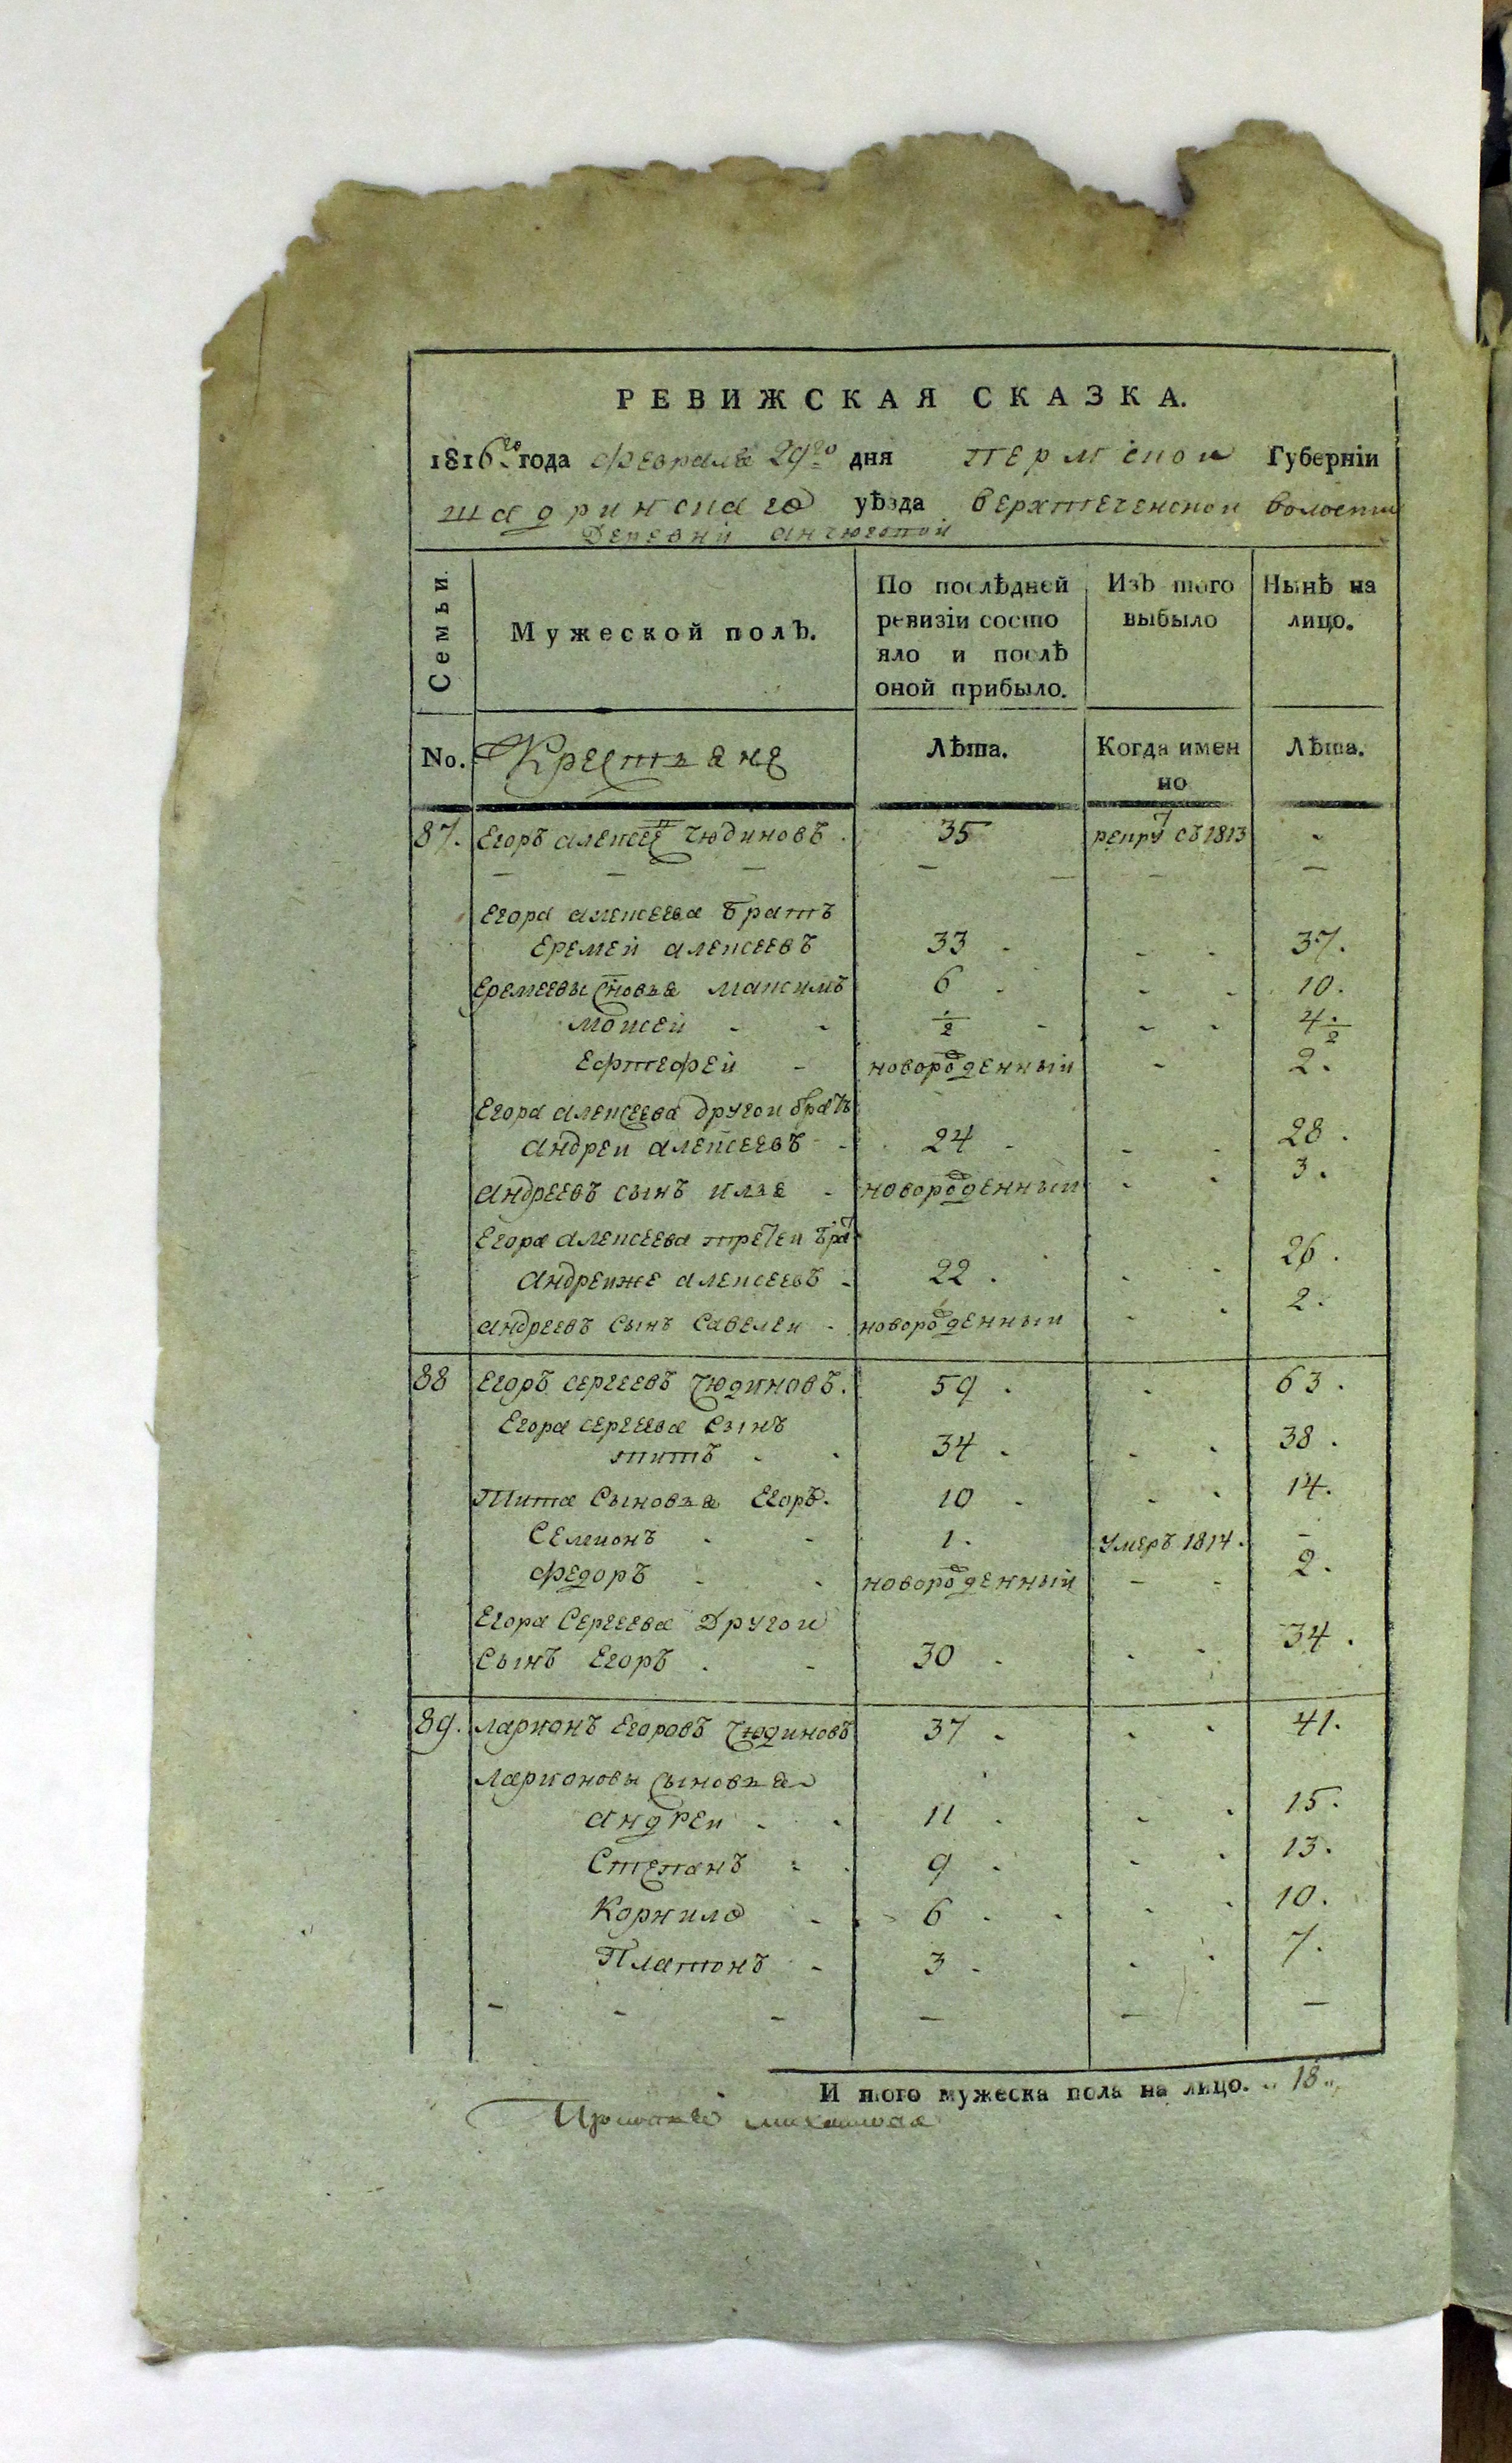 РЕВИЖСКАЯ СКАЗКА.
1816го года февраля 29го дня Пермской Губерніи
шадринскаго уѣзда верхтеченской волости
Деревни анчюговой
Семьи. Мужеской полъ. По послѣдней ревизіи состояло и послѣ оной прибыло. Изъ того выбыло Нынѣ на лицо.
No. Крестьяне Лѣта. Когда именно Лѣта.
87. Егоръ алексеев Чюдиновъ. 35 рекрут съ 1813 -
Егора алексеева братъ
Еремей алексеевъ 33 - - - 37.
Еремеевы сновья максимъ 6 - - - 10.
моисей - - 1/2 - - - 4. 1/2
Ефтефей - новорожденный - 2.
Егора алексеева другои братъ
андреи алексеевъ - 24 - - - 28.
андреевъ сынъ илья - новорожденныи - - 3.
Егора алексеева третеи брат
андреиже алексеевъ - 22. - - 26.
андреевъ сынъ савелеи - новорожденныи - - 2.
88 Егоръ сергеевъ Чюдиновъ. 59. - 63.
Егора сергеева сынъ
титъ - - 34 - - - 38.
Тита сыновья Егоръ. 10 - - - 14.
Семионъ - - 1. умеръ 1814. -
федоръ - - новорожденный - - 2.
Егора Сергеева Другои
сынъ Егоръ. - 30 - - - 34.
89. ларионъ Егоровъ Чюдиновъ 37 - - - 41.
ларионовы сыновья
андреи - - 11 - - - 15.
Степанъ - - 9 - - - 13.
Корнило - 6 - - - 10.
Платонъ - 3 - - - 7.
И того мужеска пола на лицо. „ 18 „